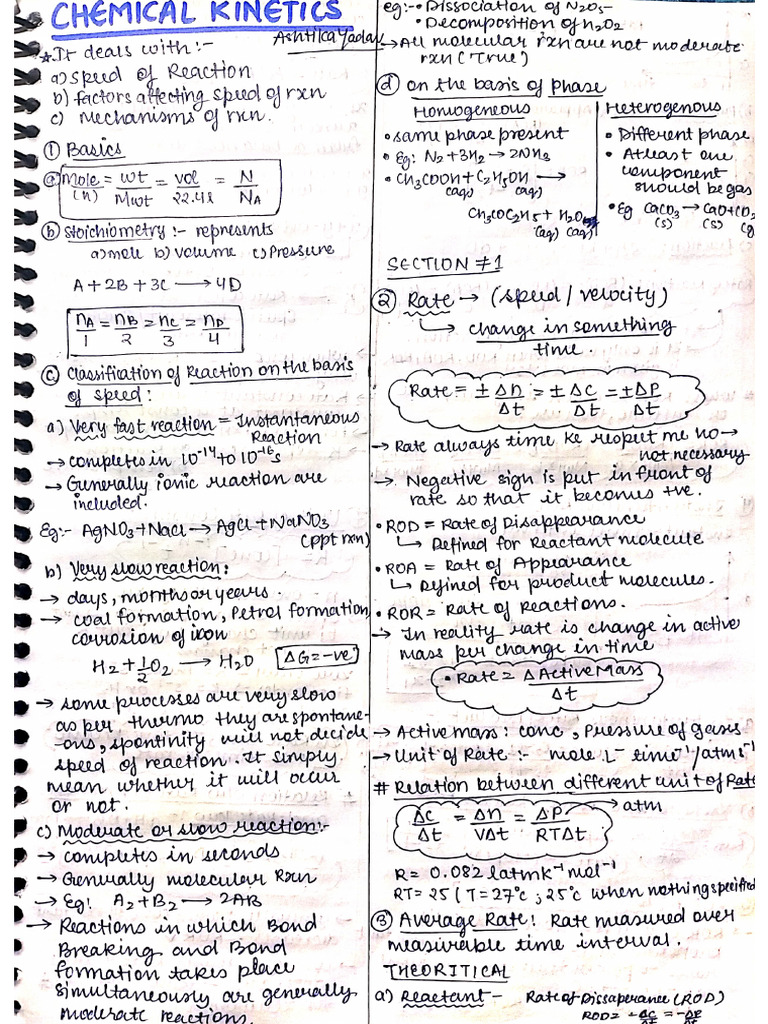 CHEMICAL KINETICS
Ashtika Yadav
* It deals with :-
a) speed of Reaction
b) factors affecting speed of rxn
c) Mechanisms of rxn.
① Basics
ⓐ Mole = wt/Mwt = vol/22.4l = N/NA
(n)
ⓑ Stoichiometry :- represents
a) mole b) volume c) Pressure
A + 2B + 3C ⟶ 4D
nA/1 = nB/2 = nC/3 = nD/4
ⓒ Classification of Reaction on the basis
of speed :
a) Very fast reaction = Instantaneous
Reaction
→ completes in 10⁻¹⁴ to 10⁻¹⁶ s
→ Generally ionic reaction are
included.
Eg:- AgNO3 + NaCl ⟶ AgCl + NaNO3
(ppt rxn)
b) Very slow reaction :
→ days, months or years.
→ coal formation, Petrol formation,
corrosion of iron
H2 + 1/2 O2 ⟶ H2O ΔG = -ve
→ some processes are very slow
as per thermo they are spontane-
ous, spontinity will not decide
speed of reaction. It simply
mean whether it will occur
or not.
c) Moderate or slow reaction:-
→ completes in seconds
→ Generally molecular Rxn
→ Eg: A2 + B2 ⟶ 2AB
→ Reactions in which Bond
Breaking and Bond
formation takes place
simultaneously are generally
moderate reactions.
eg:- • Dissociation of N2O5
• Decomposition of N2O2
→ All molecular rxn are not moderate
rxn (True)
ⓓ on the basis of phase
Homogeneous
• same phase present
• Eg: N2 + 3H2 → 2NH3
• CH3COOH + C2H5OH ⟶
(aq) (aq)
CH3COC2H5 + H2O
(aq) (aq)
Heterogenous
• Different phase
• Atleast one
component
should be gas
• Eg CaCO3 → CaO + CO2
(s) (s) (g
SECTION #1
② Rate → (speed / velocity)
↳ change in something
time.
Rate = ± Δn/Δt = ± ΔC/Δt = ± ΔP/Δt
→ Rate always time ke respect me ho →
not necessary
→ Negative sign is put in front of
rate so that it becomes +ve.
• ROD = Rate of Disappearance
↳ Defined for Reactant molecule
• ROA = Rate of Appearance
↳ Defined for product molecules.
• ROR = Rate of Reactions.
→ In reality rate is change in active
mass per change in time
• Rate = Δ Active Mass/Δt
→ Active mass : conc , pressure of gases
→ Unit of Rate :- mole L⁻ time⁻¹/atm s⁻¹
# Relation between different unit of Rate
ΔC/Δt = Δn/VΔt = ΔP/RTΔt → atm
R = 0.082 l atm k⁻¹ mol⁻¹
RT = 25 ( T = 27°c ; 25°c when nothing specified
③ Average Rate : Rate measured over
measurable time interval.
THEORITICAL
a) Reactant - Rate of Dissaperance (ROD)
ROD = -ΔC/Δt = -ΔP/Δt